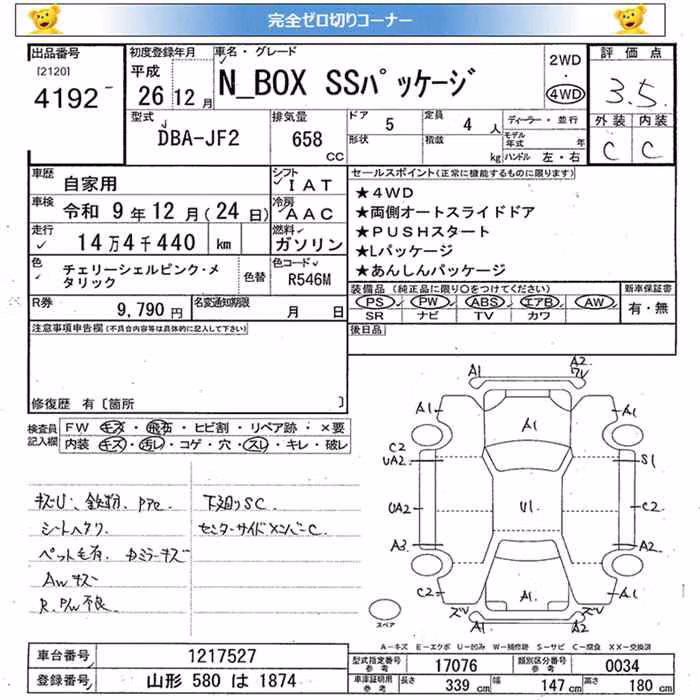 完全ゼロ切りコーナー
出品番号 初度登録年月 車名・グレード 2WD・4WD 評価点
[2120] 4192 平成 26 12月 N_BOX SSパッケージ 3.5
型式 排気量 ドア 5 定員 4人 ディーラー・並行 外装 内装
DBA-JF2 658 CC 形状 積載 kg モデル年式 年 ハンドル 左・右 C C
車歴 自家用 シフト IAT セールスポイント(正常に機能するものに限ります)
車検 令和 9年12月(24日) 冷房 AAC ★4WD
★両側オートスライドドア
走行 14万4千440 km 燃料 ガソリン ★PUSHスタート
★Lパッケージ
色 チェリーシェルピンク・メタリック 色替 色コード R546M ★あんしんパッケージ
装備品(純正品に限り○をつけてください) 新車保証書
R券 9,790円 名変通知期限 月 日 PS PW ABS エアB AW 有・無
SR ナビ TV カワ
注意事項申告欄(不具合内容等は具体的に記入して下さい) 後日品
修復歴 有〔箇所 〕
検査員記入欄 FW キズ・飛石・ヒビ割・リペア跡・×要
内装 キズ・汚レ・コゲ・穴・スレ・キレ・破レ
キズU、鉄粉、 下廻りSC
シートヘタリ センターサイドメンバーC
ペット毛有
AWキズ
R.P/W不良
A1 A2
ワレ
A1 A1 A1
C2
UA2 S1
UA2 U1 C2
A3 A2
C2 A1 A1
ズレ ズレ
A1 A2
スペア
A-キズ E-エクボ U-凹み W-補修跡 S-サビ C-腐食 XX-交換済
車台番号 1217527 型式指定番号 参考 17076 類別区分番号 参考 0034
登録番号 山形 580 は 1874 車庫証明用 参考 長さ 339 cm 幅 147 cm 高さ 180 cm